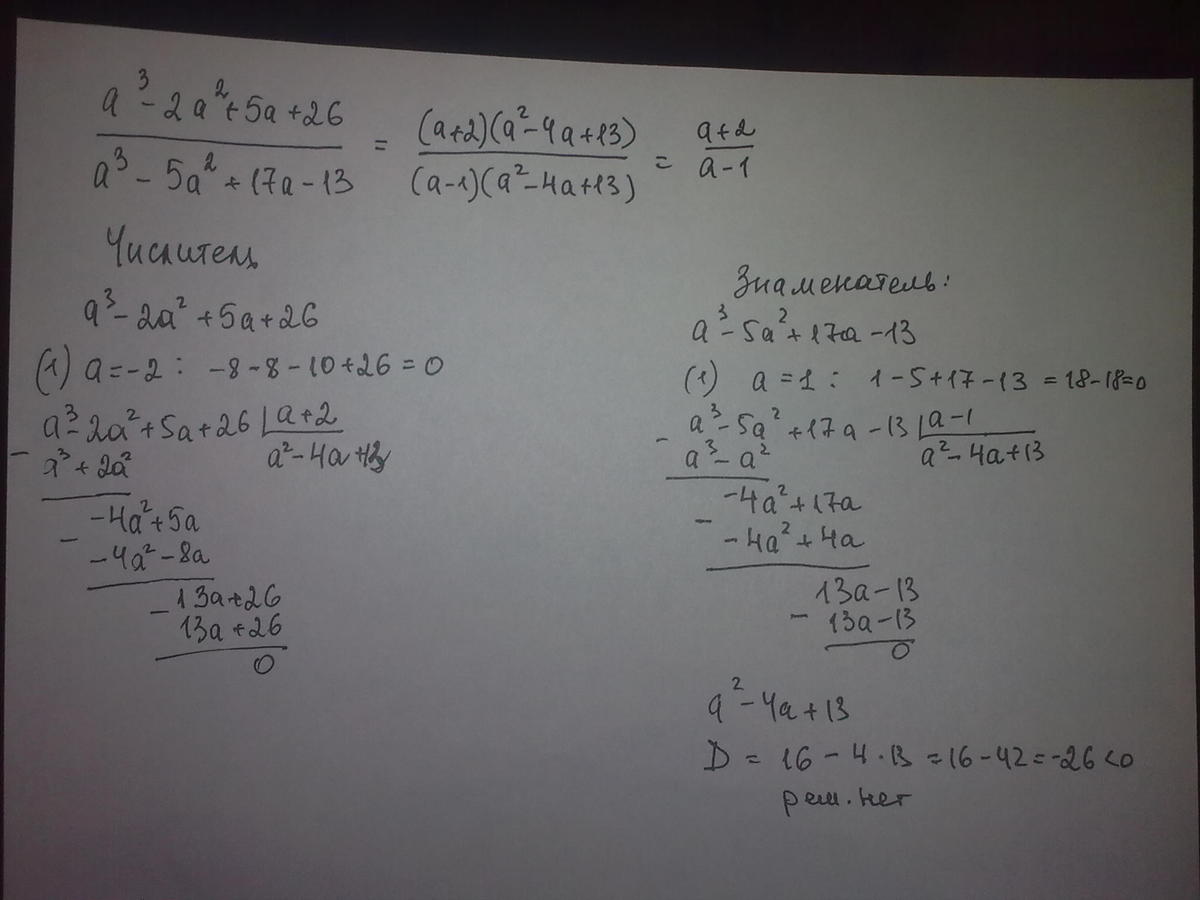 a³ - 2a² + 5a + 26 / a³ - 5a² + 17a - 13 = (a+2)(a² - 4a + 13) / (a-1)(a² - 4a + 13) = a+2 / a-1
Числитель
a³ - 2a² + 5a + 26
(1) a = -2 : -8 - 8 - 10 + 26 = 0
a³ - 2a² + 5a + 26 | a + 2
- a³ + 2a²
a² - 4a + 13
-4a² + 5a
- -4a² - 8a
13a + 26
- 13a + 26
0
Знаменатель:
a³ - 5a² + 17a - 13
(1) a = 1 : 1 - 5 + 17 - 13 = 18 - 18 = 0
a³ - 5a² + 17a - 13 | a - 1
- a³ - a²
a² - 4a + 13
-4a² + 17a
- -4a² + 4a
13a - 13
- 13a - 13
0
a² - 4a + 13
D = 16 - 4 · 13 = 16 - 42 = -26 < 0
реш. нет